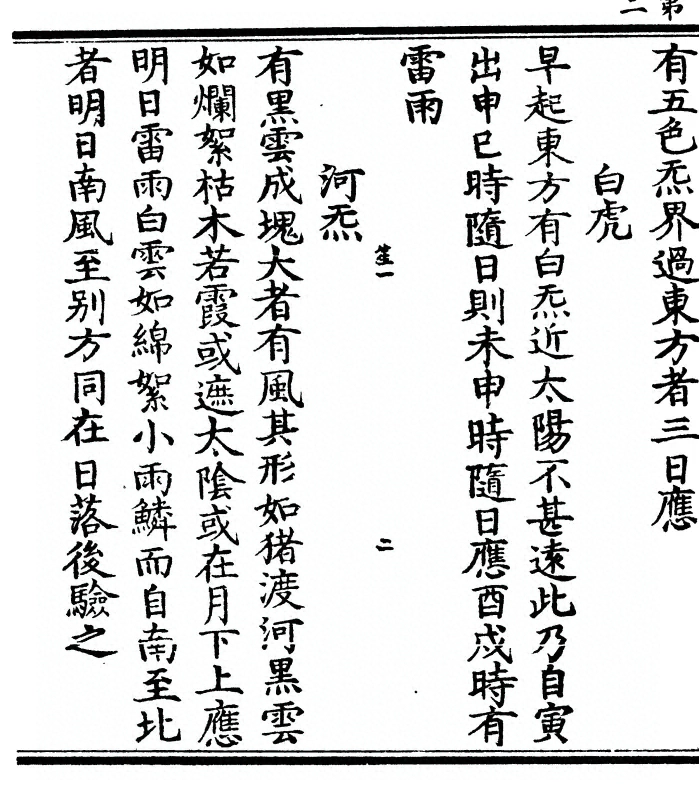 第二
有五色炁界過東方者三日應
白虎
早起東方有白炁近太陽不甚遠此乃自寅
出申巳時隨日則未申時隨日應酉戍時有
雷雨
笙一
二
河炁
有黑雲成塊大者有風其形如猪渡河黑雲
如爛絮枯木若霞或遮太陰或在月下上應
明日雷雨白雲如綿絮小雨鱗而自南至北
者明日南風至别方同在日落後驗之